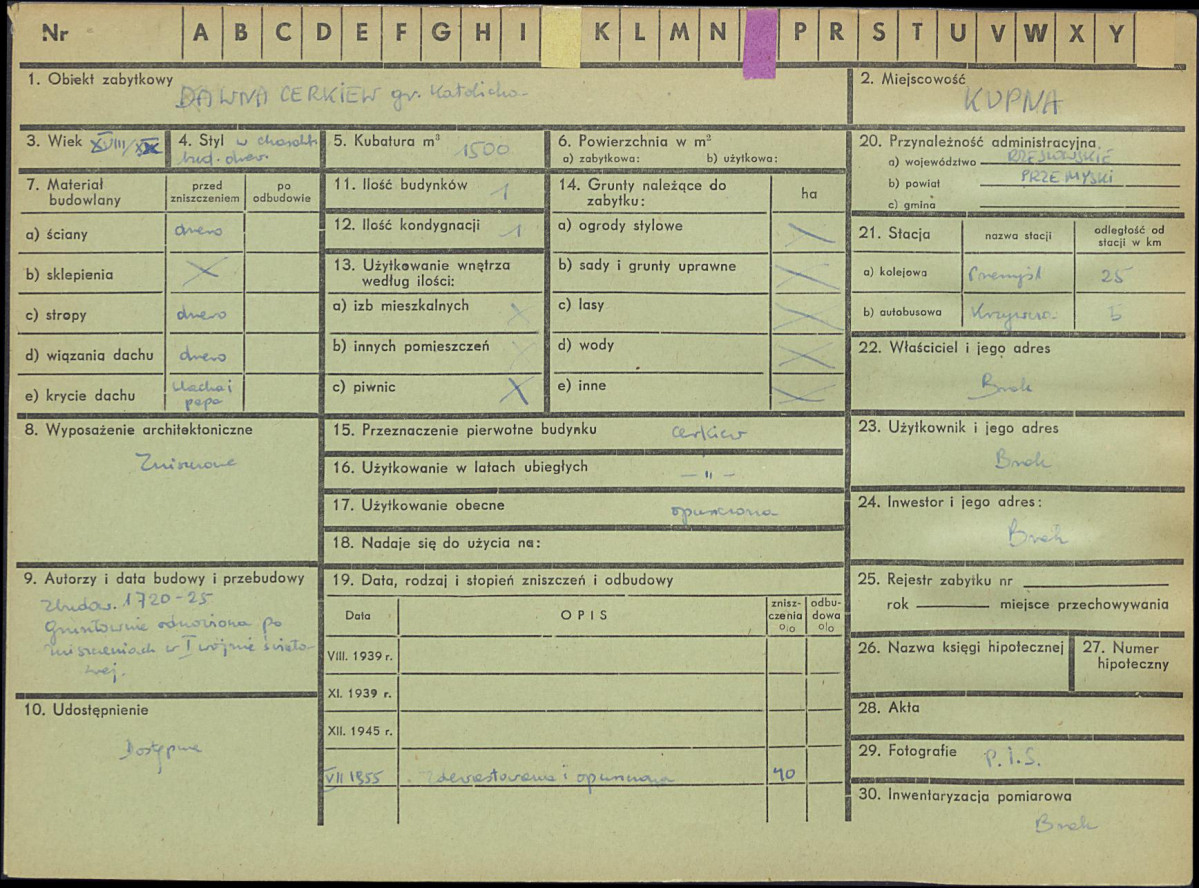 Nr A B C D E F G H I K L M N P R S T U V W X Y
1. Obiekt zabytkowy
DAWNA CERKIEW gr. Katolicka
2. Miejscowość
KUPNA
3. Wiek XVIII/XIX
4. Styl w charakt.
bud. drew.
5. Kubatura m³ 1500
6. Powierzchnia w m²
a) zabytkowa: b) użytkowa:
7. Materiał budowlany
przed zniszczeniem
po odbudowie
a) ściany drewo
b) sklepienia X
c) stropy drewo
d) wiązania dachu drewo
e) krycie dachu blacha i
papa
8. Wyposażenie architektoniczne
Zniszczone
9. Autorzy i data budowy i przebudowy
Zbudow. 1720-25
Gruntownie odnowiona po
zniszczeniach w I wojnie świato-
wej.
10. Udostępnienie
Dostępne
11. Ilość budynków 1
12. Ilość kondygnacji 1
13. Użytkowanie wnętrza
według ilości:
a) izb mieszkalnych X
b) innych pomieszczeń X
c) piwnic X
14. Grunty należące do
zabytku:
ha
a) ogrody stylowe X
b) sady i grunty uprawne X
c) lasy X
d) wody X
e) inne X
15. Przeznaczenie pierwotne budynku cerkiew
16. Użytkowanie w latach ubiegłych – " –
17. Użytkowanie obecne opuszczona
18. Nadaje się do użycia na:
19. Data, rodzaj i stopień zniszczeń i odbudowy
Data OPIS znisz-
czenia
o/o odbu-
dowa
o/o
VIII. 1939 r.
XI. 1939 r.
XII. 1945 r.
VII 1955 Zdewastowana i opuszczona 40
20. Przynależność administracyjna
a) województwo RZESZOWSKIE
b) powiat PRZEMYSKI
c) gmina
21. Stacja nazwa stacji odległość od
stacji w km
a) kolejowa Przemyśl 25
b) autobusowa Krzywcza 5
22. Właściciel i jego adres
Brak
23. Użytkownik i jego adres
Brak
24. Inwestor i jego adres:
Brak
25. Rejestr zabytku nr
rok miejsce przechowywania
26. Nazwa księgi hipotecznej
27. Numer
hipoteczny
28. Akta
29. Fotografie P.I.S.
30. Inwentaryzacja pomiarowa
Brak